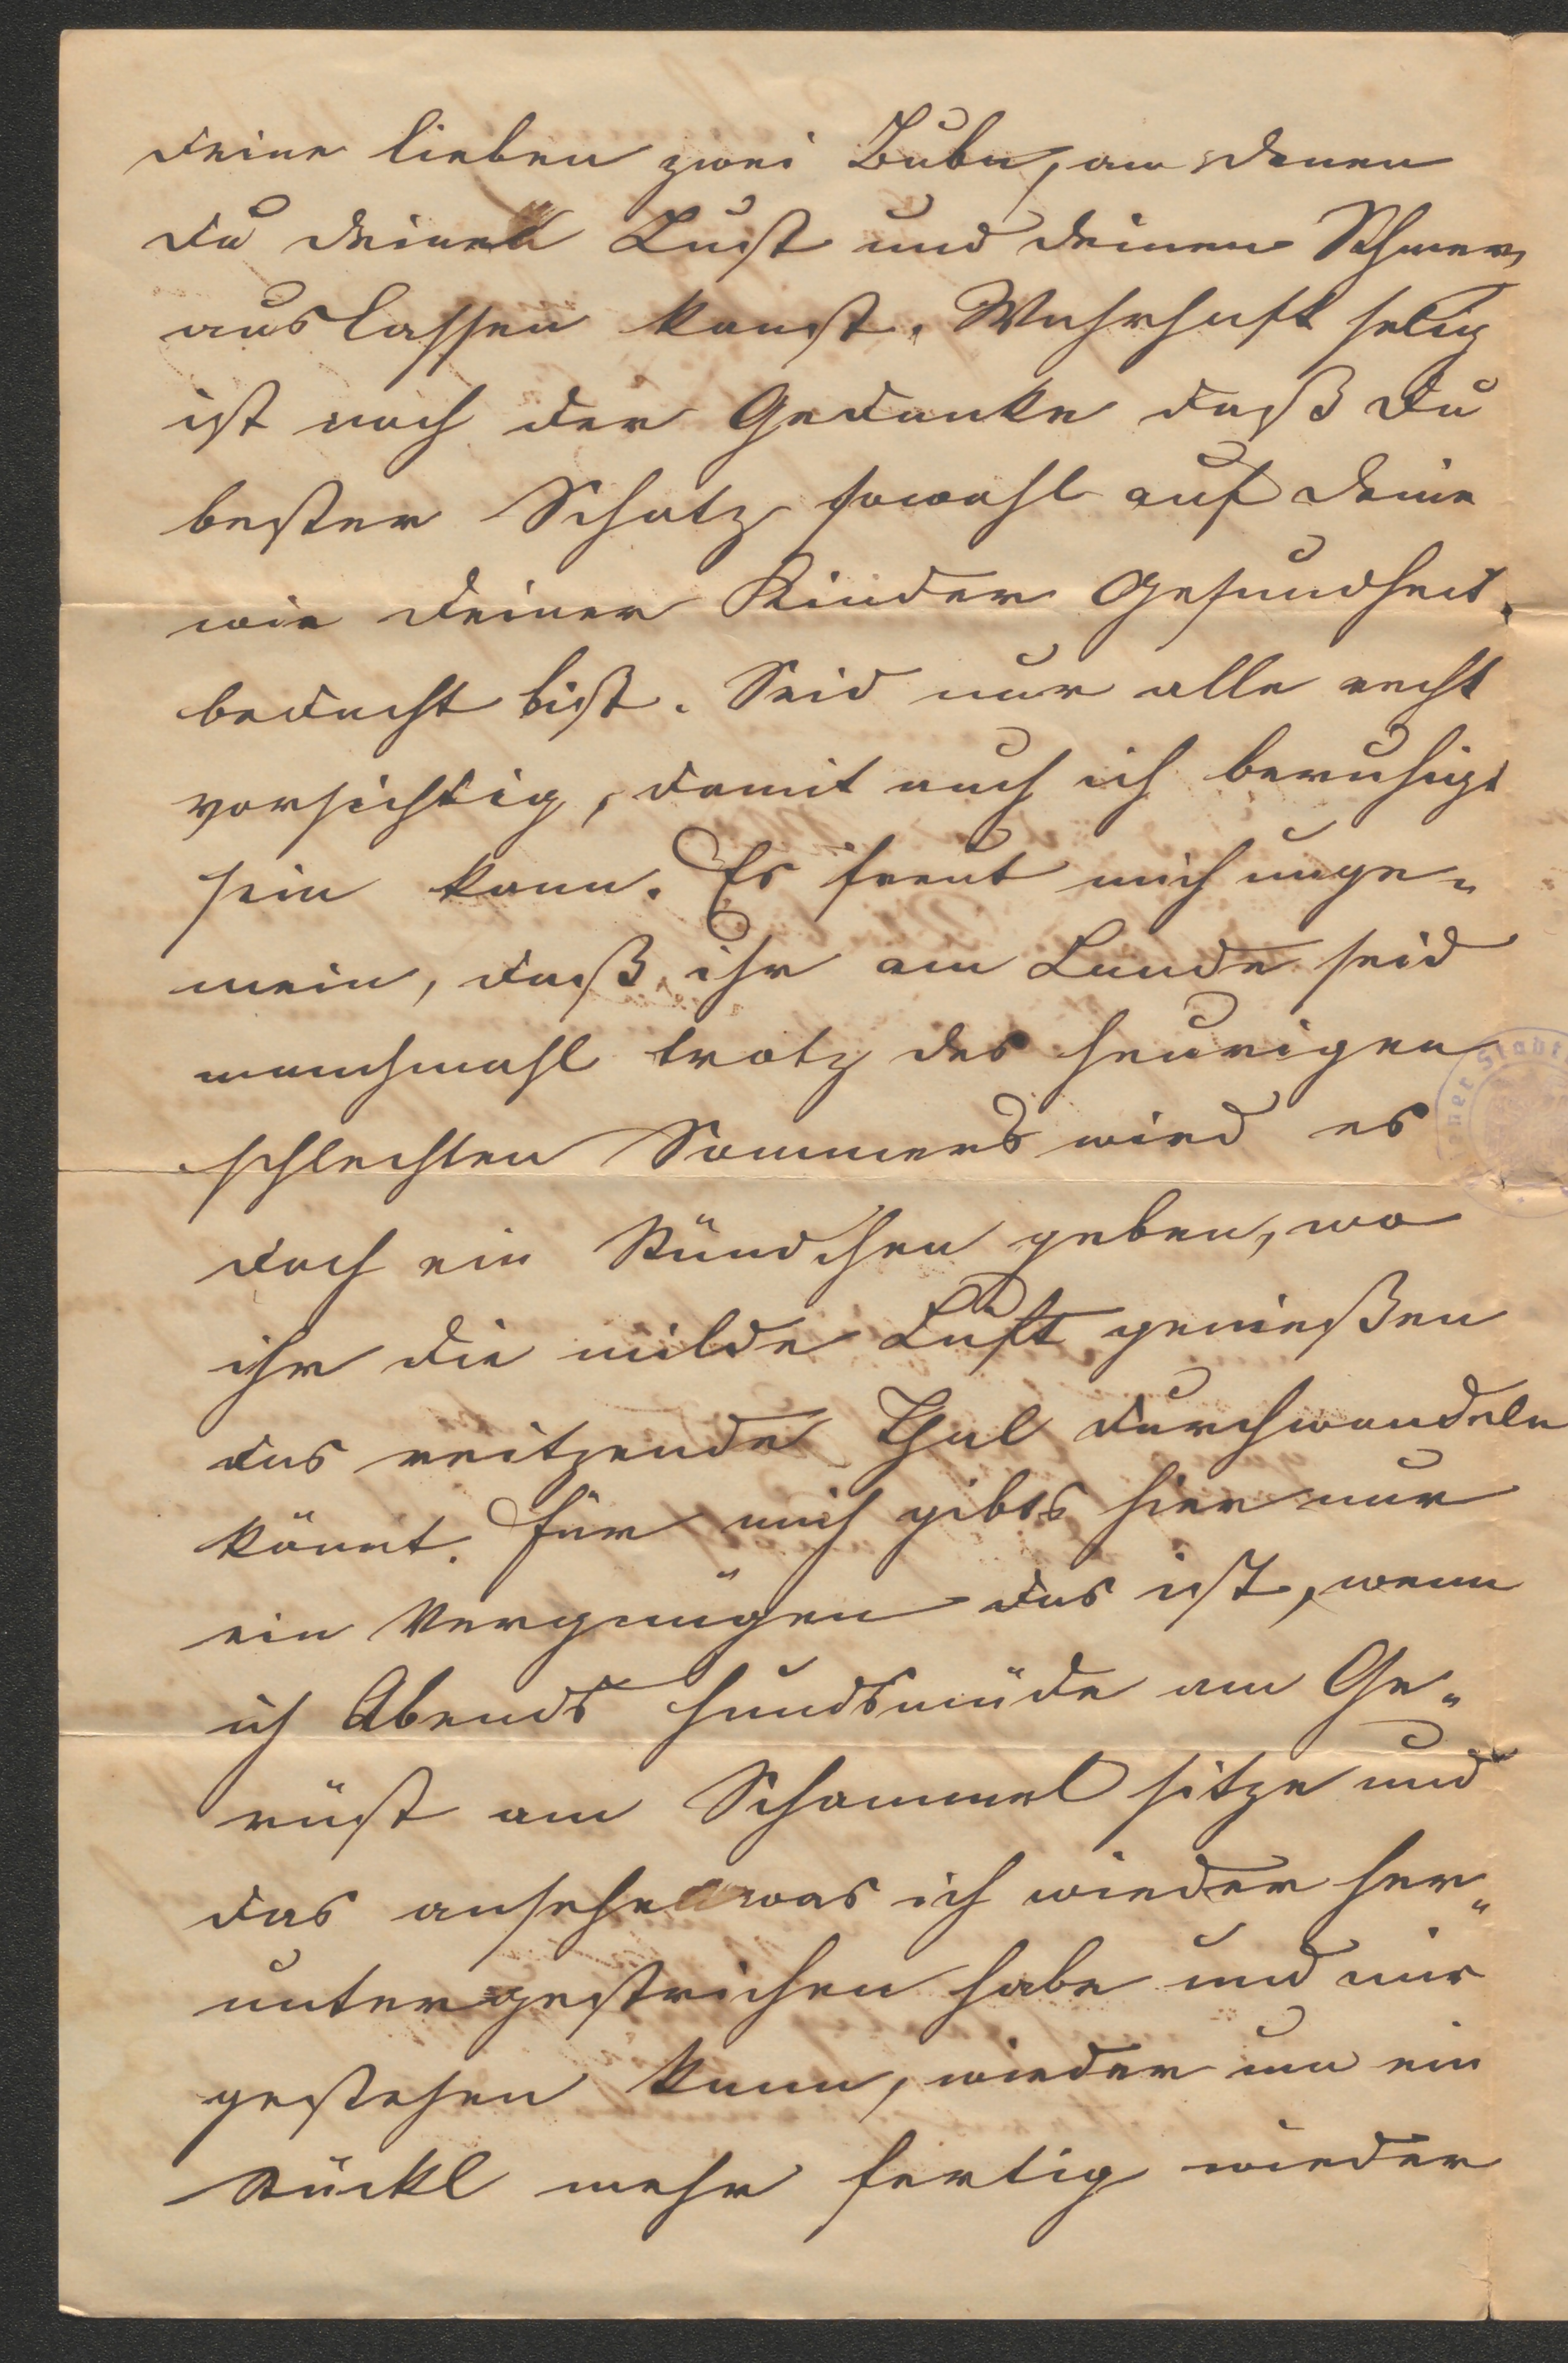 deine lieben zwei Bubn, an denen
du deine Lust und deinen Schmerz
auslassen kanst. Wahrhaft selig
ist noch der Gedanke daß du
bester Schatz sowohl auf deine
wie deiner Kinder Gesundheit
bedacht bist. Seid nur alle recht
vorsichtig, damit auch ich beruhigt
sein kann. Es freut mich unge-
mein, daß ihr am Lande seid
manchmahl trotz des heurigen
schlechten Sommers wird es
doch ein Stündchen geben, wo
ihr die milde Luft genießen
das reitzende Thal durchwandeln
könnt. Für mich gibts hier nur
ein Vergnügen das ist, wenn
ich Abends hundsmüde am Ge-
rüst am Schammel sitze und
das ansehe was ich wieder her-
untergestrichen habe und mir
gestehen kann, wieder um ein
Stückl mehr fertig wieder